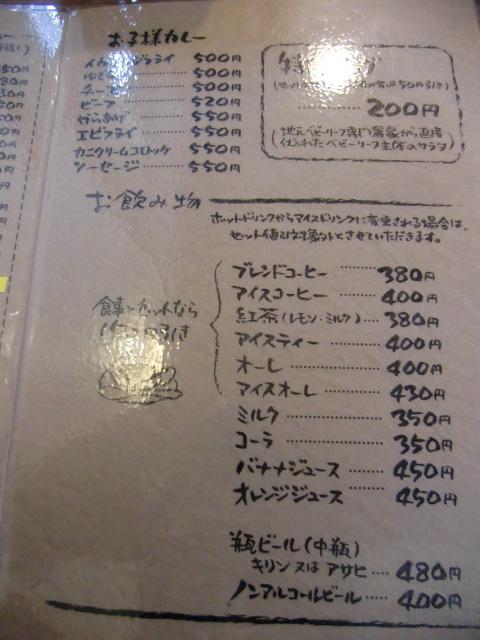 お子様カレー
フライ 500円
ゆで 500円
チーズ 500円
ビーフ 520円
からあげ 550円
エビフライ 550円
カニクリームコロッケ 550円
ソーセージ 550円
200円
(地元ベビーリーフ専門農家から直接
仕入れたベビーリーフ主体のサラダ)
お飲み物
ホットドリンクからアイスドリンクに変更される場合は、
セット値引対象外とさせていただきます。
食事とセットなら
ブレンドコーヒー 380円
アイスコーヒー 400円
紅茶(レモン・ミルク) 380円
アイスティー 400円
オーレ 400円
アイスオーレ 430円
ミルク 350円
コーラ 350円
バナナジュース 450円
オレンジジュース 450円
瓶ビール(中瓶)
キリン又はアサヒ 480円
ノンアルコールビール 400円